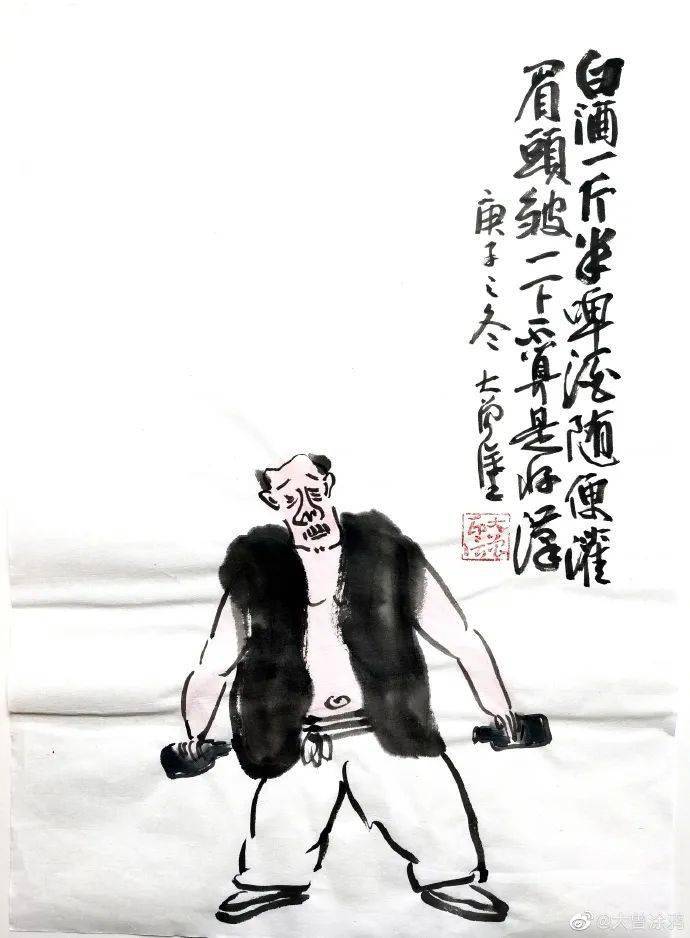 白酒一斤半啤酒随便灌
眉頭皱一下不算是好漢
庚子之冬 大曾塗
@大曾涂鸦